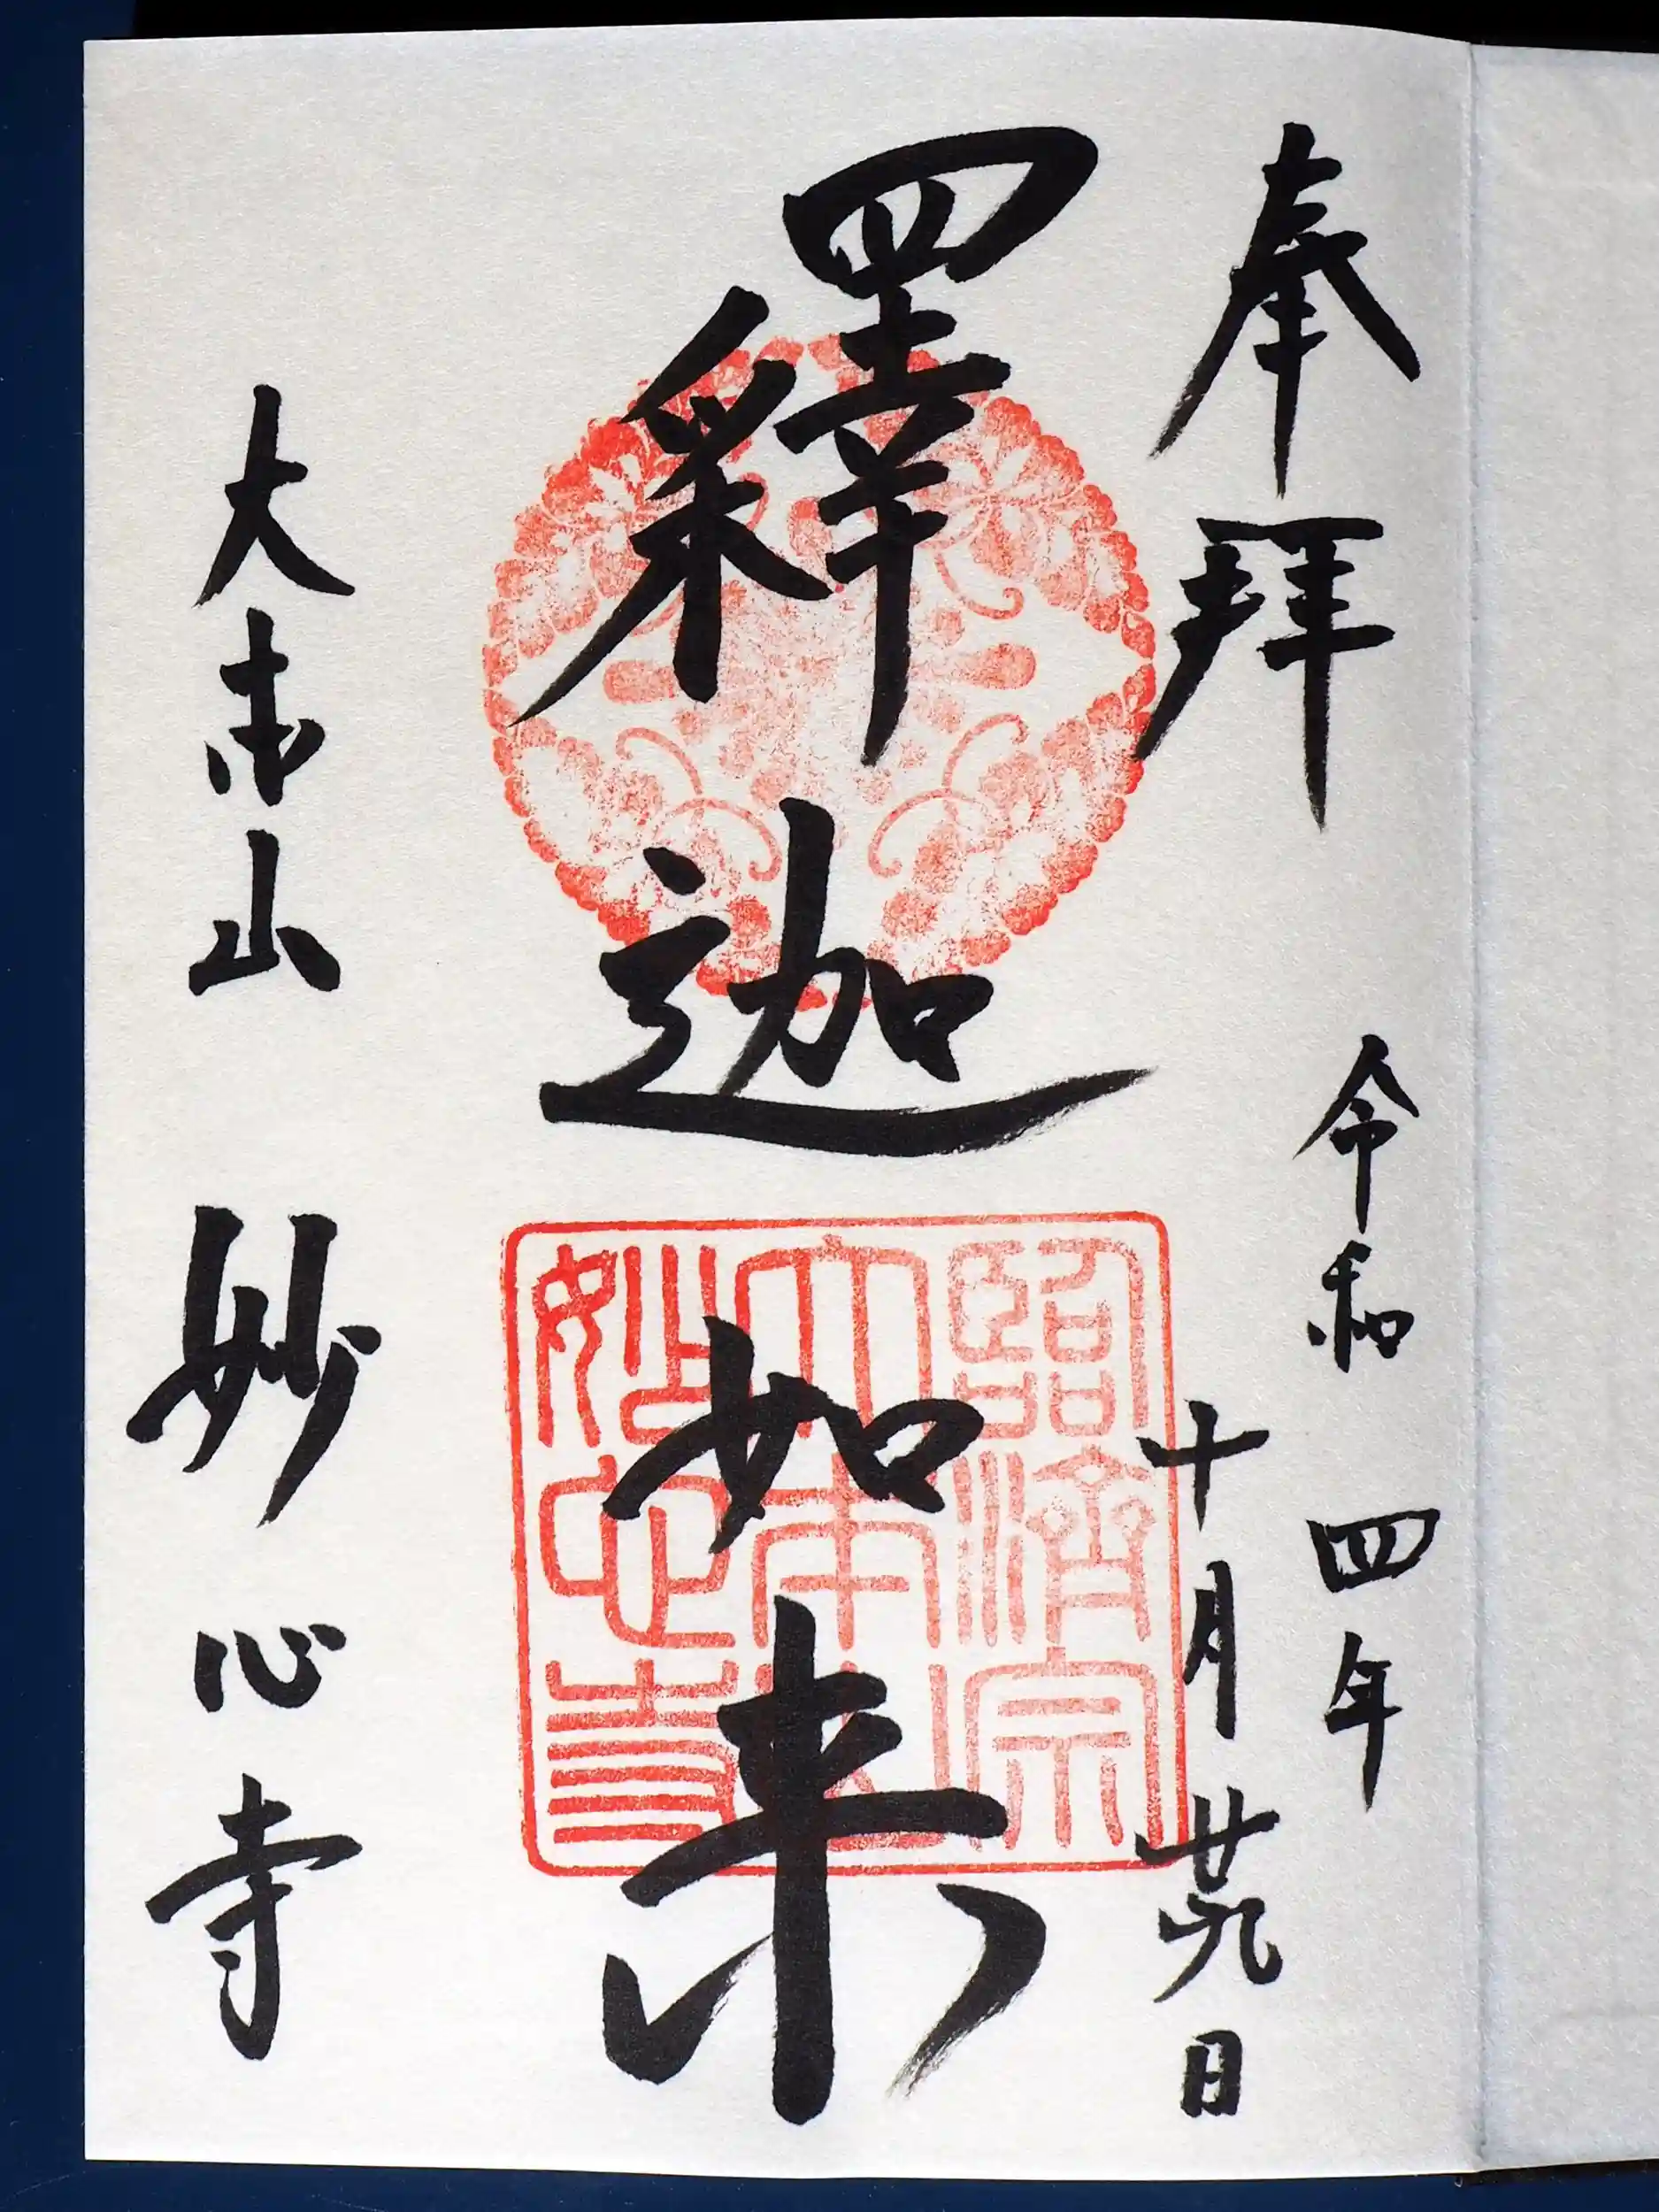 奉拜
令和四年
十月廿九日
釋迦如来
臨濟宗
大本山
妙心寺
大本山 妙心寺